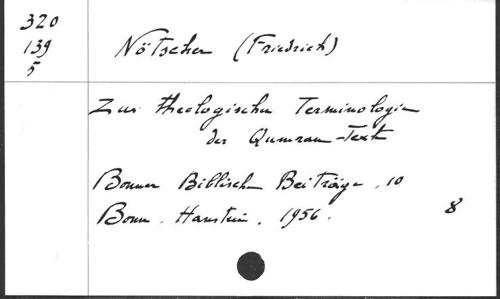 320
139
5
Nötscher (Friedrich)
Zur theologischen Terminologie
der Qumran-Texte
Bonner Biblische Beiträge, 10
Bonn. Hanstein. 1956.
8